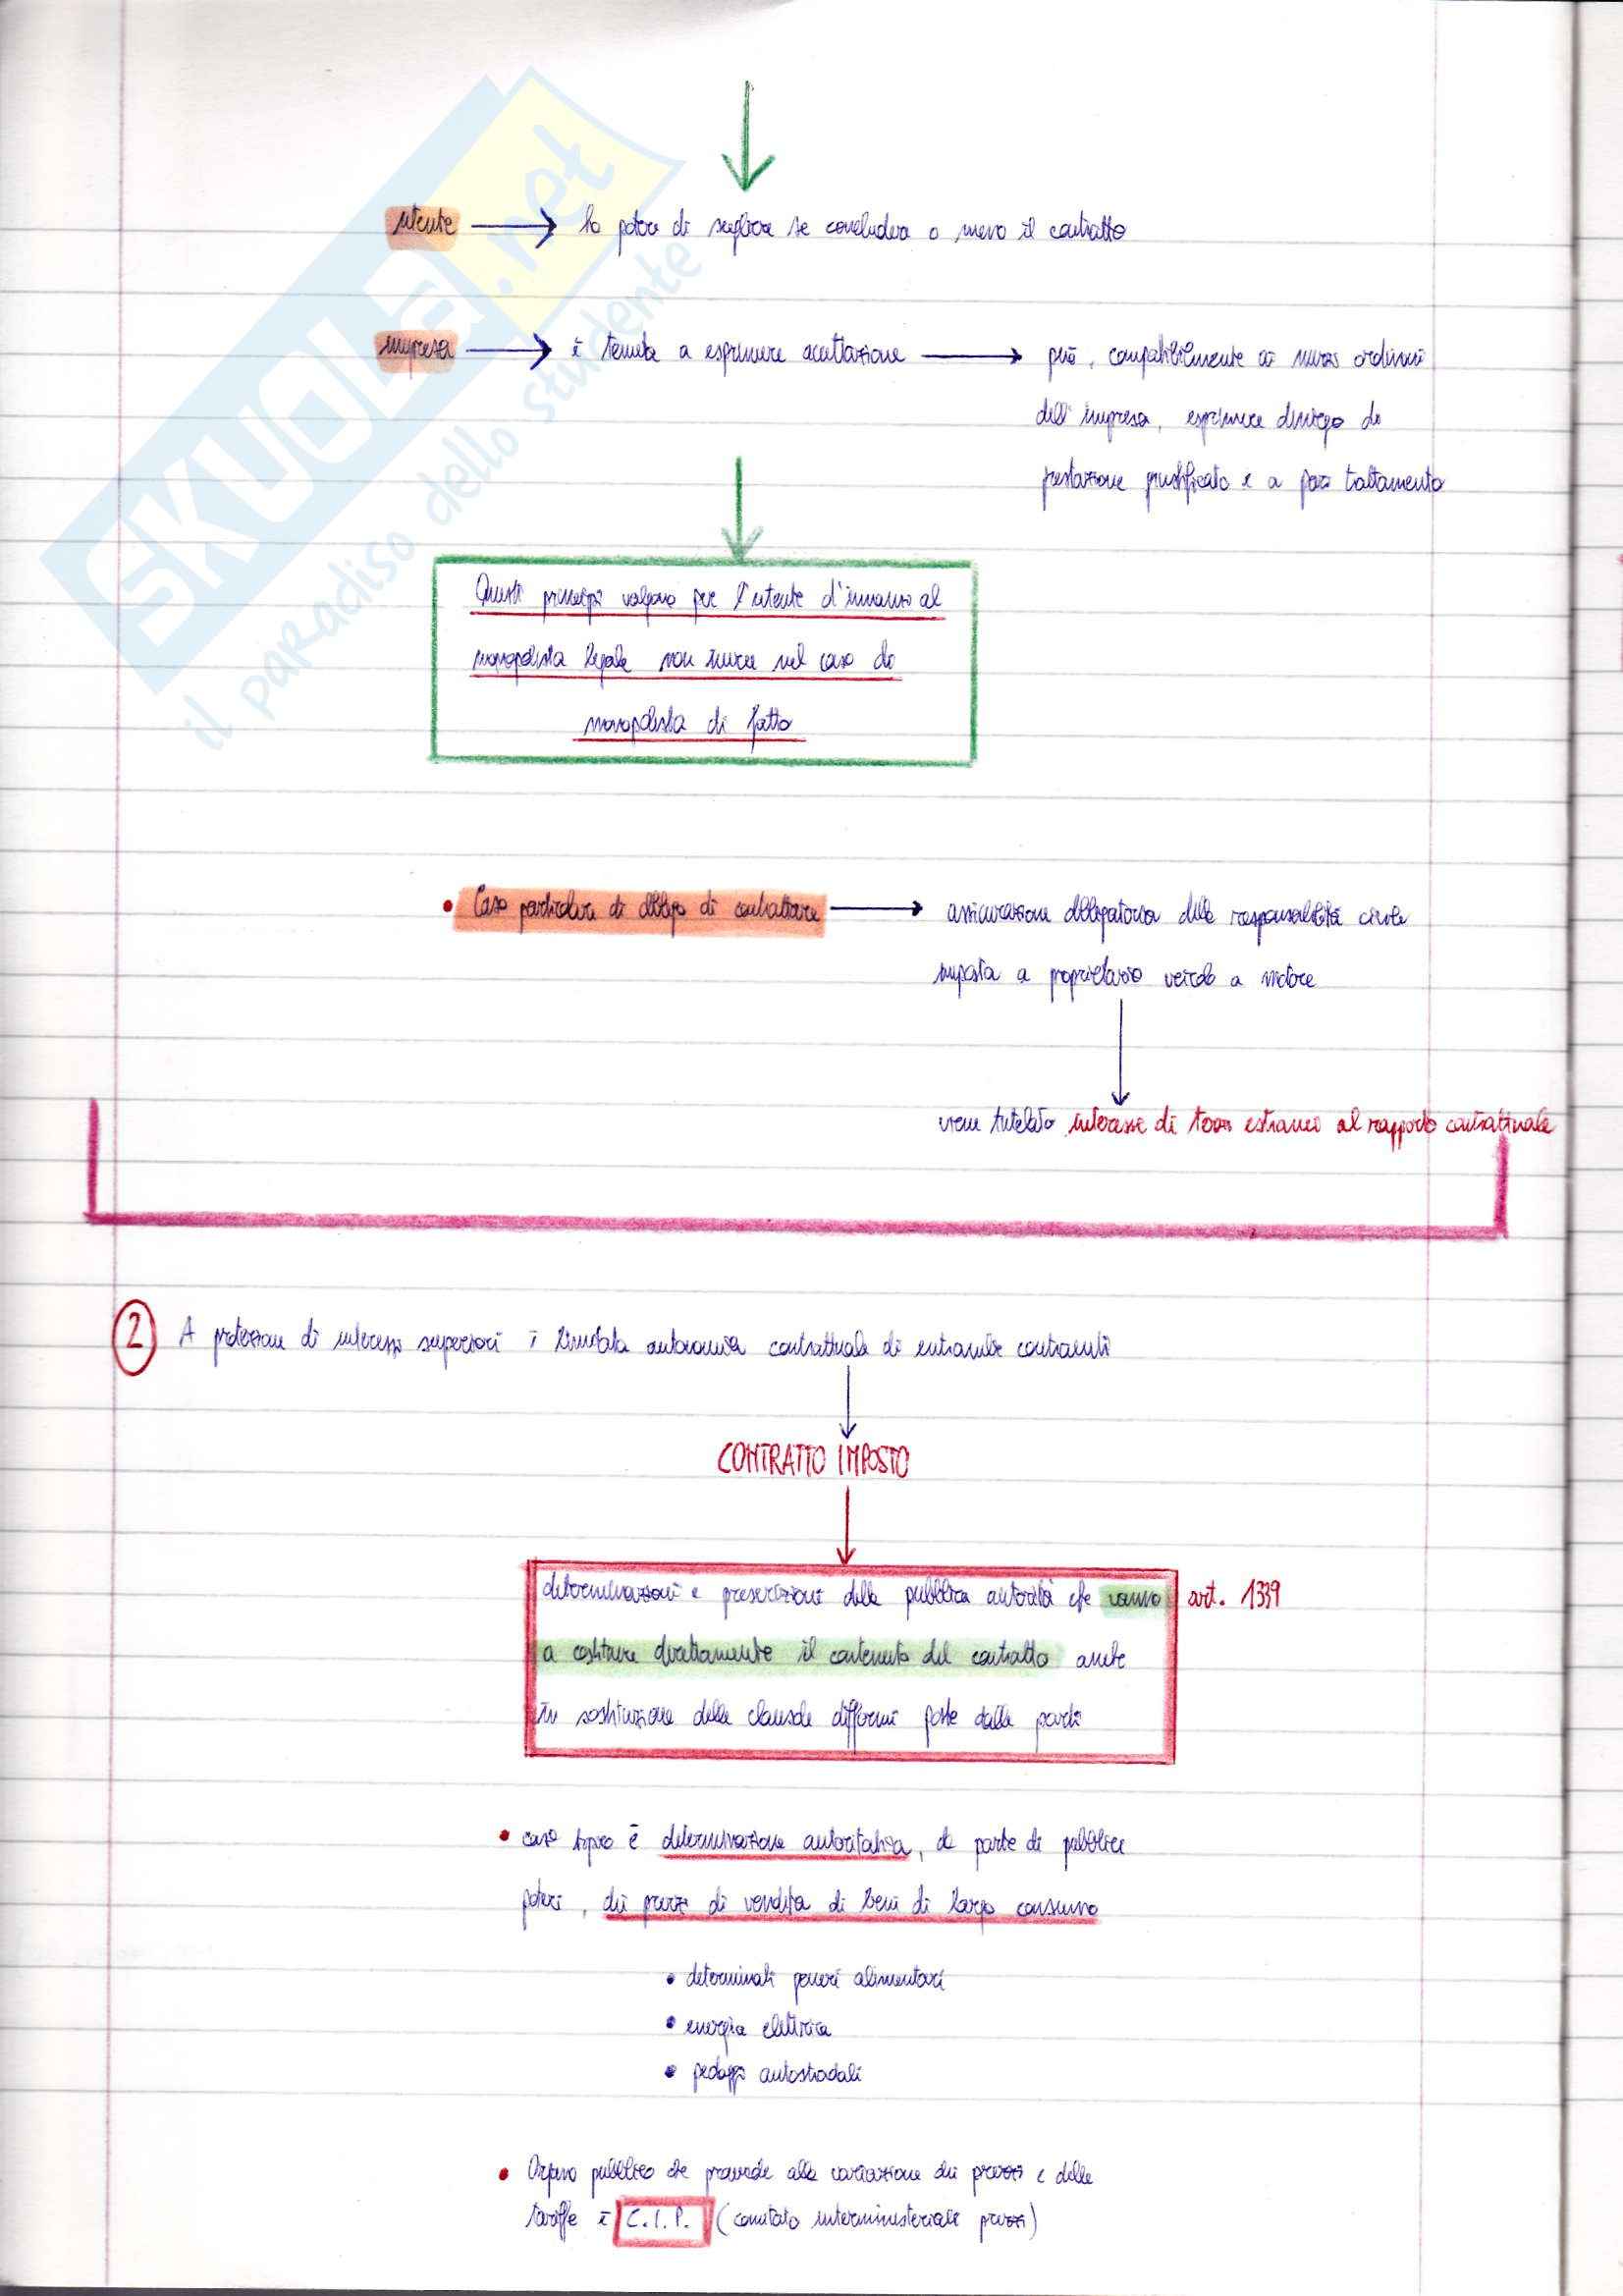 SKUOLA.net
il paradiso dello studente
utente → ha potere di scegliere se concludere o meno il contratto
impresa → è tenuta a esprimere accettazione → può, compatibilmente ai mezzi ordinari
dell'impresa, esprimere diniego di
prestazione giustificato e a pari trattamento
Questi principi valgono per l'utente d'innanzi al
monopolista legale non invece nel caso di
monopolista di fatto
• Caso particolare di obbligo di contrattare → assicurazione obbligatoria della responsabilità civile
imposta a proprietario veicolo a motore
viene tutelato interesse di terzi estranei al rapporto contrattuale
2 A protezione di interessi superiori è limitata autonomia contrattuale di entrambi contraenti
CONTRATTO IMPOSTO
determinazioni e prescrizioni della pubblica autorità che vanno art. 1339
a costituire direttamente il contenuto del contratto anche
in sostituzione delle clausole difformi poste dalle parti
• caso tipico è determinazione autoritativa, da parte di pubblici
poteri, dei prezzi di vendita di beni di largo consumo
• determinati generi alimentari
• energia elettrica
• pedaggi autostradali
• Organo pubblico che provvede alla variazione dei prezzi e delle
tariffe è C.I.P. (comitato interministeriale prezzi)